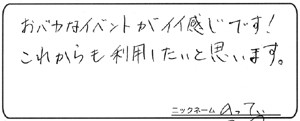 おバカなイベントがイイ感じです！
これからも利用したいと思います。
ニックネーム